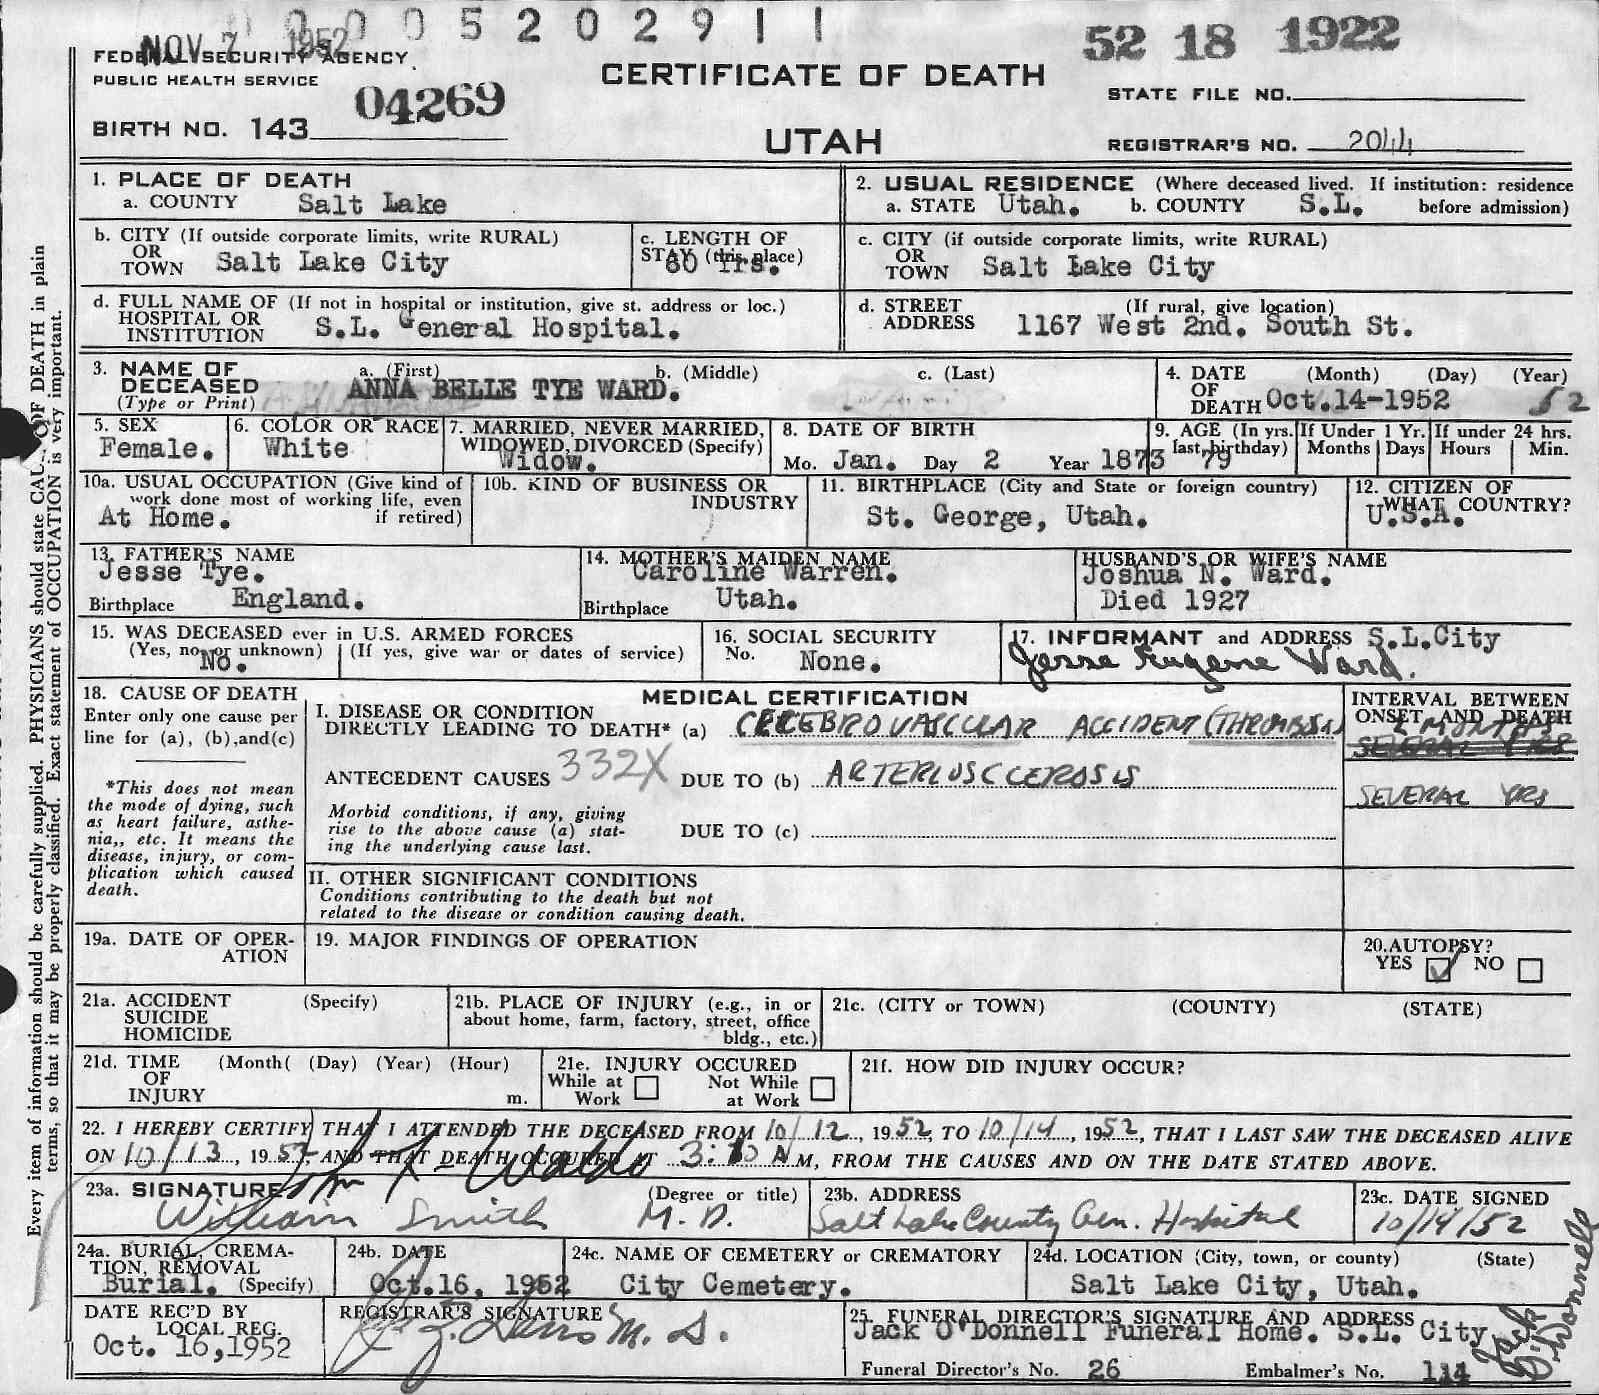 0 0 0 5 2 0 2 9 1 1
NOV 7 1952
52 18 1922
FEDERAL SECURITY AGENCY
PUBLIC HEALTH SERVICE
CERTIFICATE OF DEATH
STATE FILE NO.
04269
BIRTH NO. 143
UTAH
REGISTRAR'S NO. 2044
1. PLACE OF DEATH
a. COUNTY Salt Lake
2. USUAL RESIDENCE (Where deceased lived. If institution: residence before admission)
a. STATE Utah. b. COUNTY S.L.
b. CITY (If outside corporate limits, write RURAL)
OR TOWN Salt Lake City
c. LENGTH OF STAY (this place)
60 Yrs.
c. CITY (if outside corporate limits, write RURAL)
OR TOWN Salt Lake City
d. FULL NAME OF (If not in hospital or institution, give st. address or loc.)
HOSPITAL OR INSTITUTION S.L. General Hospital.
d. STREET ADDRESS (If rural, give location)
1167 West 2nd. South St.
3. NAME OF DECEASED
(Type or Print)
a. (First) b. (Middle) c. (Last)
ANNA BELLE TYE WARD.
4. DATE OF DEATH (Month) (Day) (Year)
Oct.14-1952 52
5. SEX
Female.
6. COLOR OR RACE
White
7. MARRIED, NEVER MARRIED, WIDOWED, DIVORCED (Specify)
Widow.
8. DATE OF BIRTH
Mo. Jan. Day 2 Year 1873
9. AGE (In yrs. last birthday)
79
If Under 1 Yr.
Months Days
If under 24 hrs.
Hours Min.
10a. USUAL OCCUPATION (Give kind of work done most of working life, even if retired)
At Home.
10b. KIND OF BUSINESS OR INDUSTRY
11. BIRTHPLACE (City and State or foreign country)
St. George, Utah.
12. CITIZEN OF WHAT COUNTRY?
U.S.A.
13. FATHER'S NAME
Jesse Tye.
Birthplace England.
14. MOTHER'S MAIDEN NAME
Caroline Warren.
Birthplace Utah.
HUSBAND'S OR WIFE'S NAME
Joshua N. Ward.
Died 1927
15. WAS DECEASED ever in U.S. ARMED FORCES
(Yes, no, or unknown) (If yes, give war or dates of service)
No.
16. SOCIAL SECURITY No.
None.
17. INFORMANT and ADDRESS S.L.City
Jesse Eugene Ward.
18. CAUSE OF DEATH
Enter only one cause per line for (a), (b),and(c)
*This does not mean the mode of dying, such as heart failure, asthe-nia,, etc. It means the disease, injury, or com-plication which caused death.
MEDICAL CERTIFICATION
I. DISEASE OR CONDITION DIRECTLY LEADING TO DEATH* (a) CEREBROVASCULAR ACCIDENT (THROMBOSIS)
ANTECEDENT CAUSES 332X DUE TO (b) ARTERIOSCLEROSIS
Morbid conditions, if any, giving rise to the above cause (a) stat-ing the underlying cause last.
DUE TO (c)
II. OTHER SIGNIFICANT CONDITIONS
Conditions contributing to the death but not related to the disease or condition causing death.
INTERVAL BETWEEN ONSET AND DEATH
MONTHS
SEVERAL YRS
SEVERAL YRS
19a. DATE OF OPER-ATION
19. MAJOR FINDINGS OF OPERATION
20.AUTOPSY?
YES NO
21a. ACCIDENT SUICIDE HOMICIDE (Specify)
21b. PLACE OF INJURY (e.g., in or about home, farm, factory, street, office bldg., etc.)
21c. (CITY or TOWN) (COUNTY) (STATE)
21d. TIME OF INJURY (Month( (Day) (Year) (Hour) m.
21e. INJURY OCCURED
While at Work Not While at Work
21f. HOW DID INJURY OCCUR?
22. I HEREBY CERTIFY THAT I ATTENDED THE DECEASED FROM 10/12, 1952, TO 10/14, 1952, THAT I LAST SAW THE DECEASED ALIVE
ON 10/13, 1952, AND THAT DEATH OCCURED AT A M, FROM THE CAUSES AND ON THE DATE STATED ABOVE.
Waldo
23a. SIGNATURE (Degree or title)
William Smith M.D.
23b. ADDRESS
Salt Lake County Gen. Hospital
23c. DATE SIGNED
10/14/52
24a. BURIAL, CREMA-TION, REMOVAL (Specify)
Burial.
24b. DATE
Oct.16, 1952
24c. NAME OF CEMETERY or CREMATORY
City Cemetery.
24d. LOCATION (City, town, or county) (State)
Salt Lake City, Utah.
DATE REC'D BY LOCAL REG.
Oct. 16,1952
REGISTRAR'S SIGNATURE
25. FUNERAL DIRECTOR'S SIGNATURE AND ADDRESS
Jack O'Donnell Funeral Home. S.L. City
Jack O'Donnell
Funeral Director's No. 26 Embalmer's No. 114
Every item of information should be carefully supplied. PHYSICIANS should state CAUSE OF DEATH in plain
terms, so that it may be properly classified. Exact statement of OCCUPATION is very important.